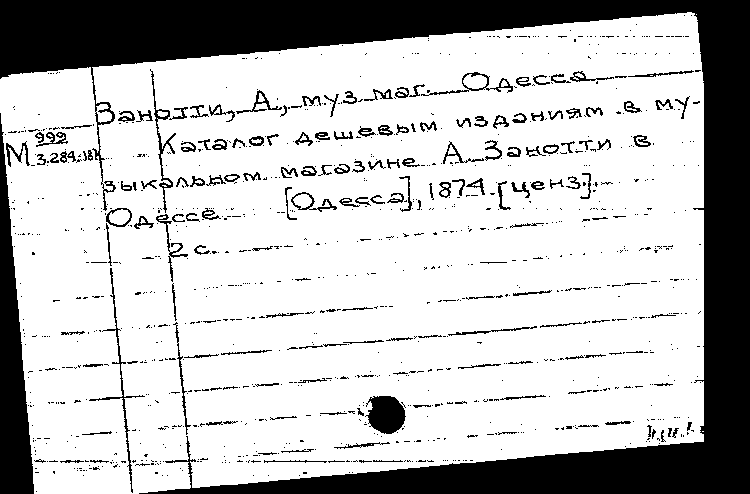 Занотти, А, муз. маг. Одесса.
М 999
3.284:18
Каталог дешевым изданиям в му-
зыкальном магазине А. Занотти в
Одессе [Одесса], 1874. [ценз].
2 с.